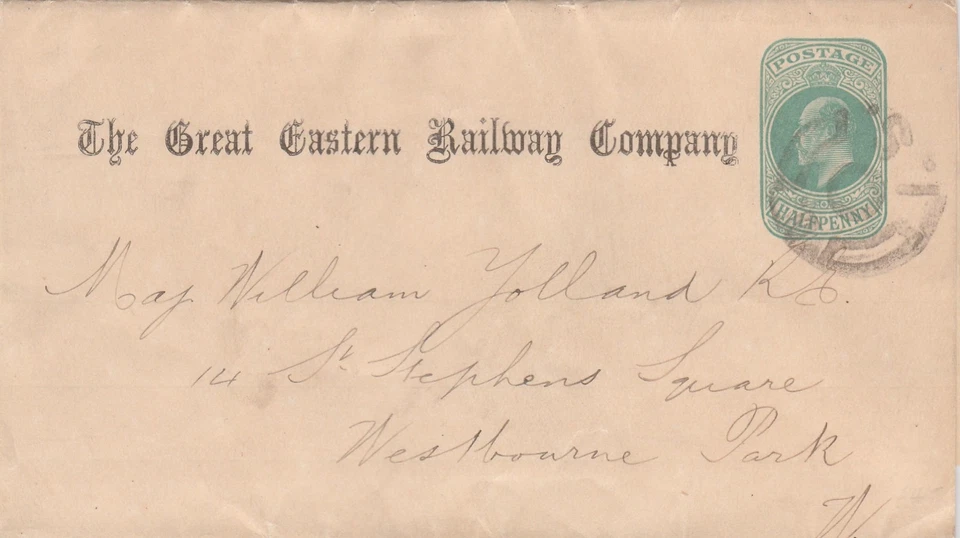 POSTAGE
HALFPENNY
The Great Eastern Railway Company
Maj William Yolland
14 St. Stephens Square
Westbourne Park
W.